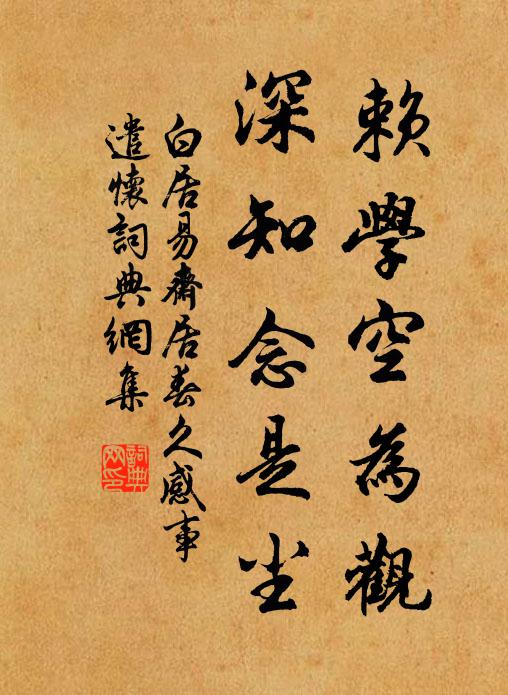 賴學空為觀
深知念是尘
白居易齋居春久感事
遣懷詞典網集
詞典
网印